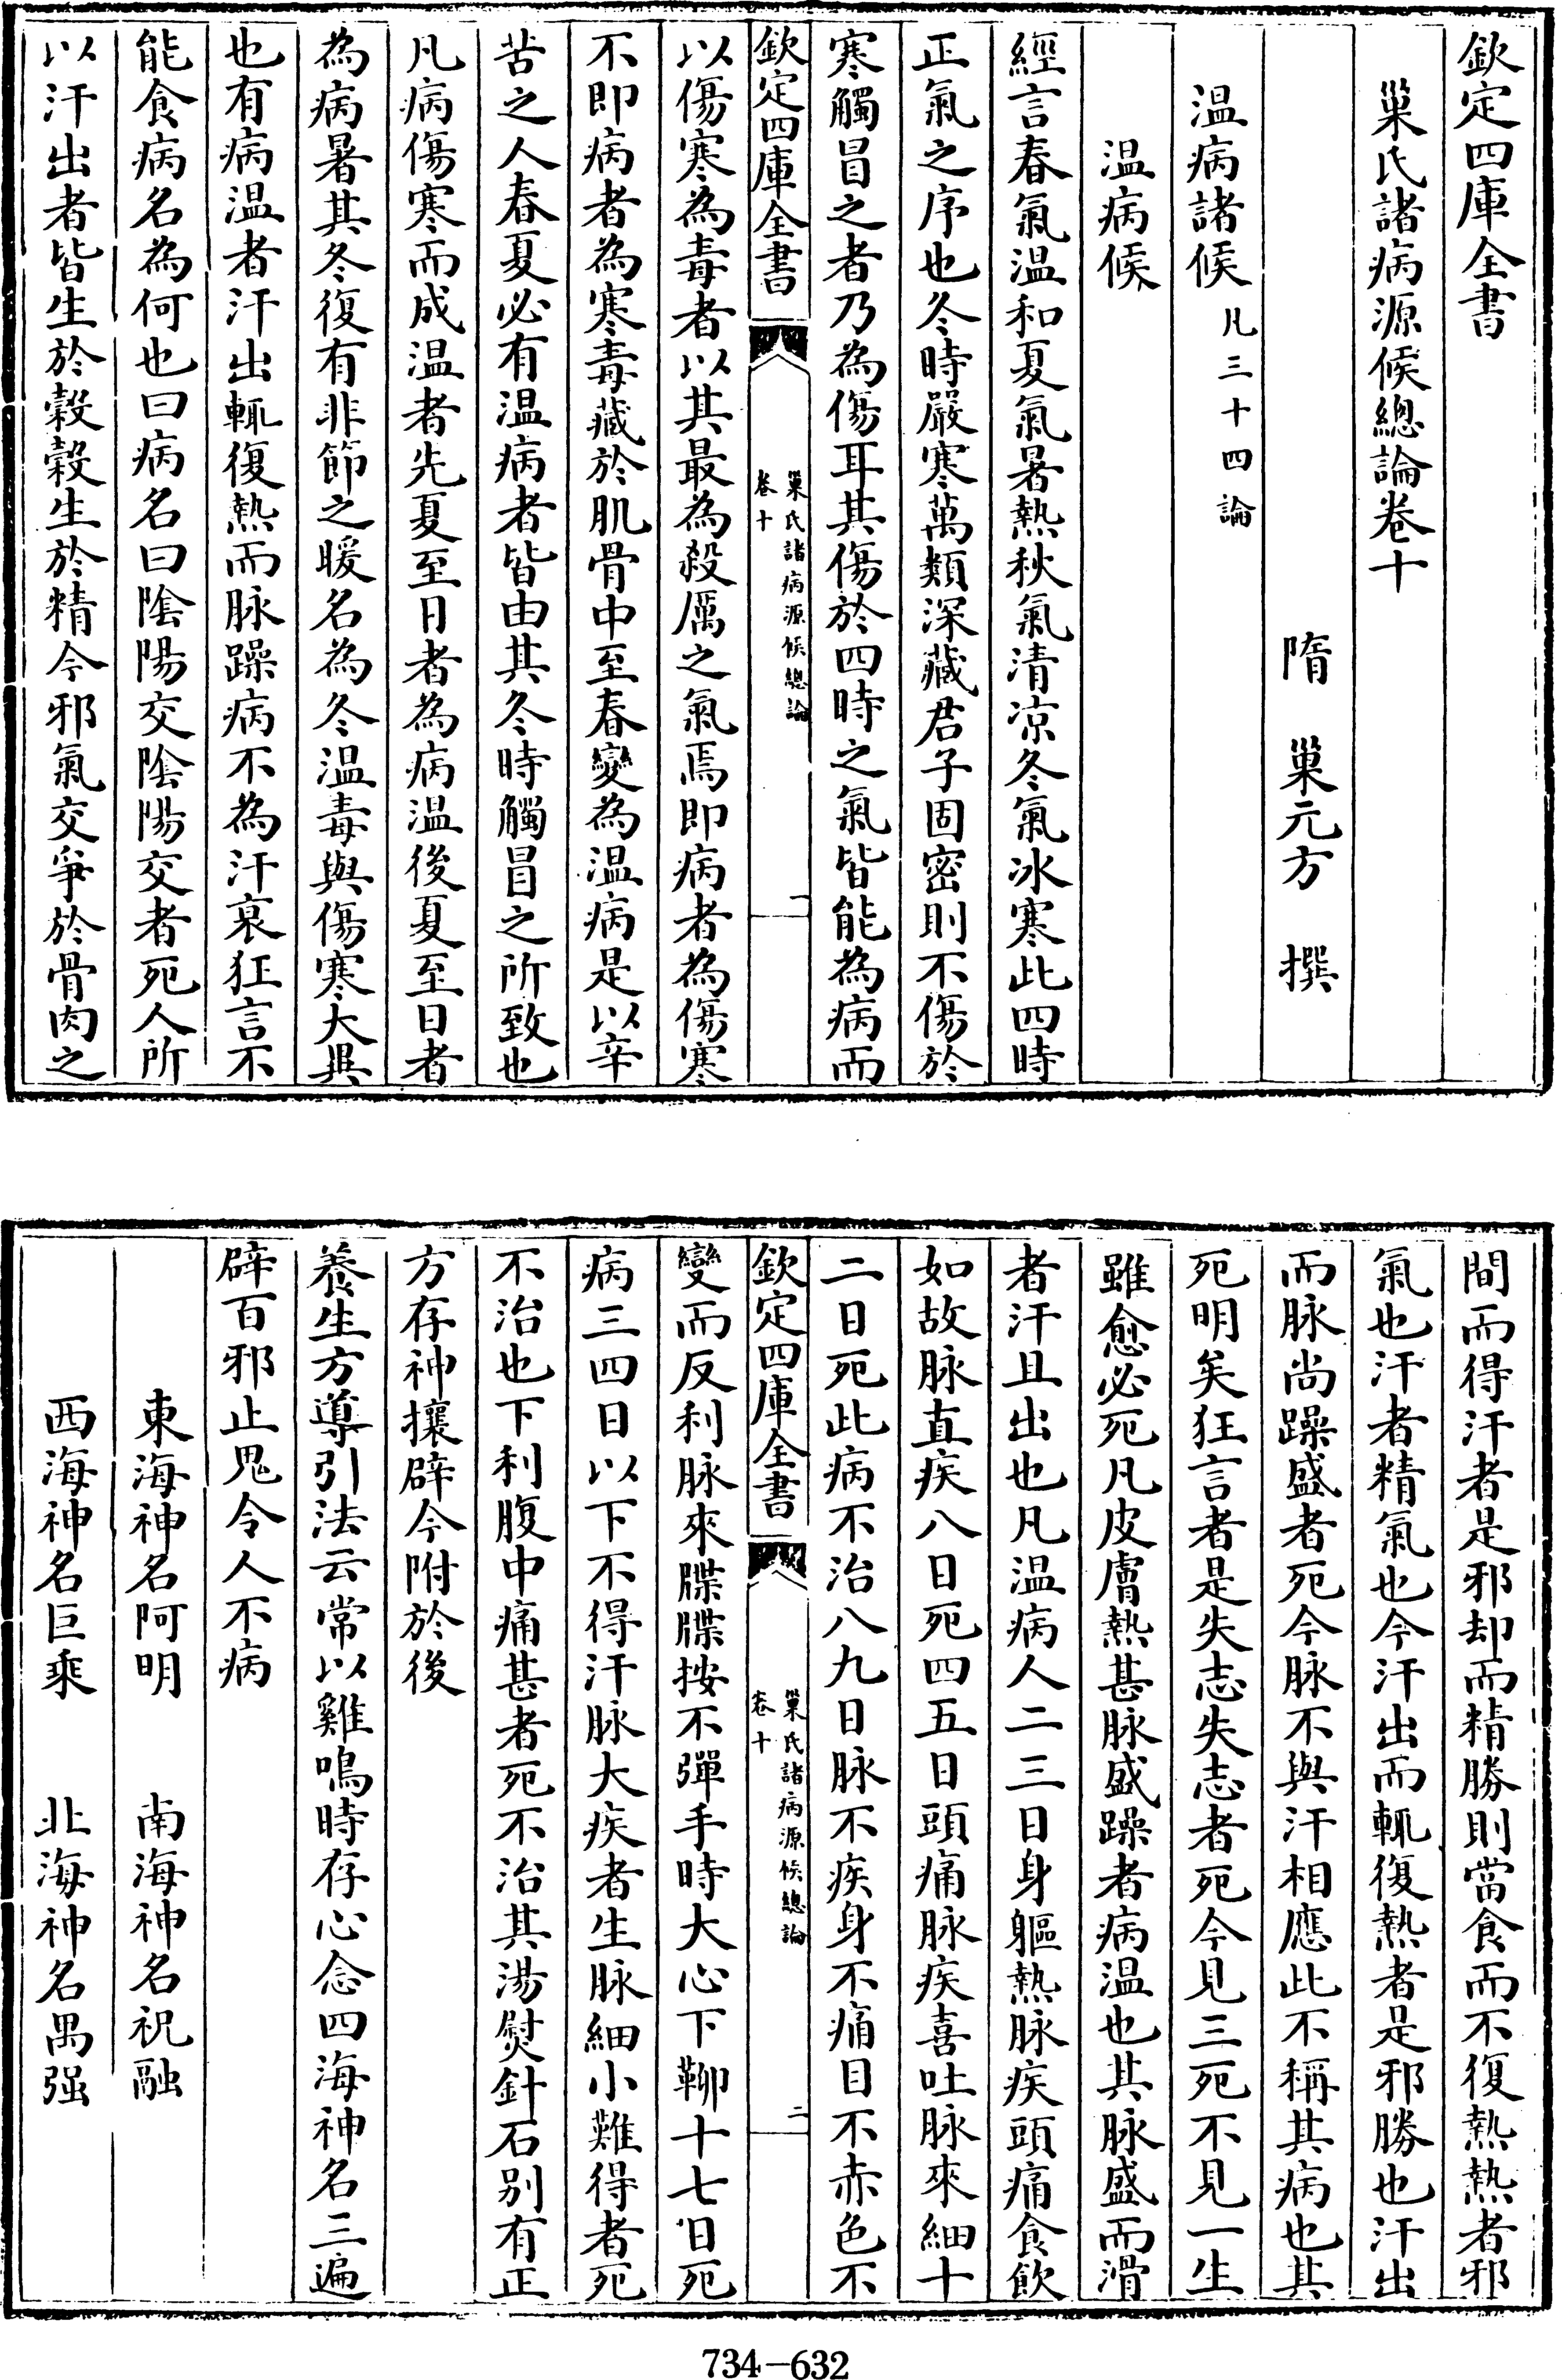 欽定四庫全書
巢氏諸病源候總論卷十
隋　巢元方　撰
温病諸候凡三十四論
温病候
經言春氣温和夏氣暑熱秋氣清凉冬氣冰寒此四時
正氣之序也冬時嚴寒萬類深藏君子固密則不傷於
寒觸冒之者乃為傷耳其傷於四時之氣皆能為病而
欽定四庫全書
巢氏諸病源候總論
卷十
一
以傷寒為毒者以其最為殺厲之氣焉即病者為傷寒
不即病者為寒毒藏於肌骨中至春變為温病是以辛
苦之人春夏必有温病者皆由其冬時觸冒之所致也
凡病傷寒而成温者先夏至日者為病温後夏至日者
為病暑其冬復有非節之暖名為冬温毒與傷寒大異
也有病温者汗出輒復熱而脉躁病不為汗衰狂言不
能食病名為何也曰病名曰陰陽交陰陽交者死人所
以汗出者皆生於榖榖生於精今邪氣交爭於骨肉之
間而得汗者是邪却而精勝則當食而不復熱熱者邪
氣也汗者精氣也今汗出而輒復熱者是邪勝也汗出
而脉尚躁盛者死今脉不與汗相應此不稱其病也其
死明矣狂言者是失志失志者死今見三死不見一生
雖愈必死凡皮膚熱甚脉盛躁者病温也其脉盛而滑
者汗且出也凡温病人二三日身軀熱脉疾頭痛食飲
如故脉直疾八日死四五日頭痛脉疾喜吐脉來細十
二日死此病不治八九日脉不疾身不痛目不赤色不
欽定四庫全書
巢氏諸病源候總論
卷十
二
變而反利脉來牒牒按不彈手時大心下鞕十七日死
病三四日以下不得汗脉大疾者生脉細小難得者死
不治也下利腹中痛甚者死不治其湯熨針石别有正
方存神攘辟今附於後
養生方導引法云常以雞鳴時存心念四海神名三遍
辟百邪止鬼令人不病
東海神名阿明　南海神名祝融
西海神名巨乘　北海神名禺强
734-632